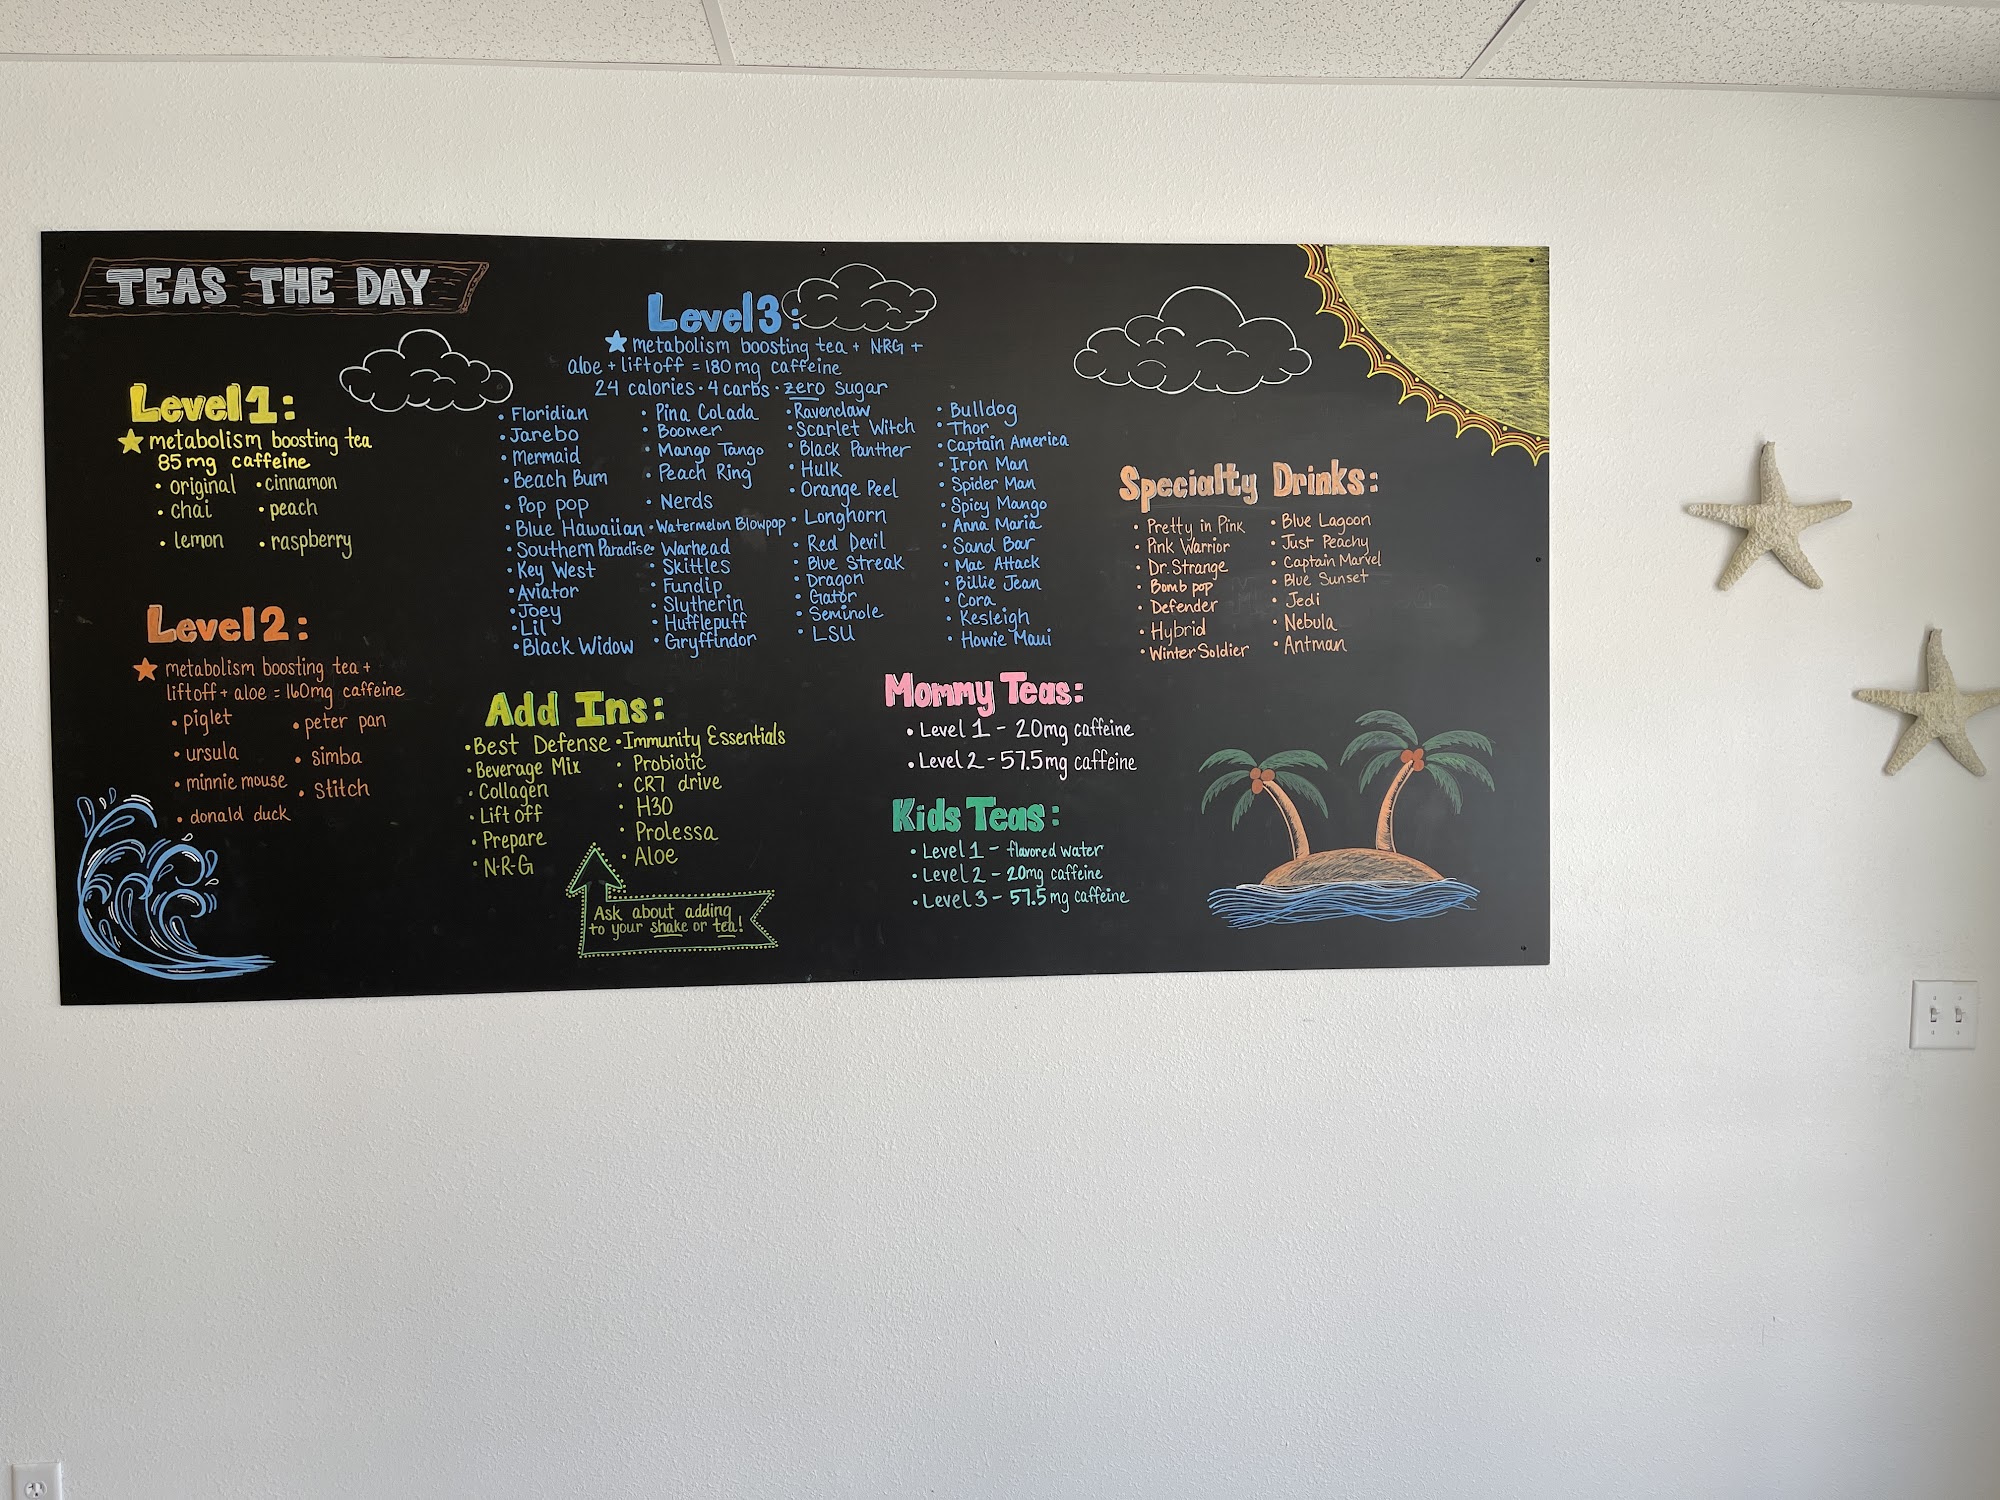 TEAS THE DAY
Level 1:
metabolism boosting tea
85 mg caffeine
• original
• chai
• lemon
• cinnamon
• peach
• raspberry
Level 2:
metabolism boosting tea +
liftoff + aloe = 160mg caffeine
• piglet
• ursula
• minnie mouse
• donald duck
• peter pan
• simba
• stitch
Level 3:
metabolism boosting tea + NRG +
aloe + liftoff = 180 mg caffeine
24 calories • 4 carbs • zero sugar
• Floridian
• Jarebo
• Mermaid
• Beach Bum
• Pop pop
• Blue Hawaiian
• Southern Paradise
• Key West
• Aviator
• Joey
• Lil
• Black Widow
• Pina Colada
• Boomer
• Mango Tango
• Peach Ring
• Nerds
• Watermelon Blowpop
• Warhead
• Skittles
• Fundip
• Slytherin
• Hufflepuff
• Gryffindor
• Ravenclaw
• Scarlet Witch
• Black Panther
• Hulk
• Orange Peel
• Longhorn
• Red Devil
• Blue Streak
• Dragon
• Gator
• Seminole
• LSU
• Bulldog
• Thor
• Captain America
• Iron Man
• Spider Man
• Spicy Mango
• Anna Maria
• Sand Bar
• Mac Attack
• Billie Jean
• Cora
• Kesleigh
• Howie Maui
Add Ins:
• Best Defense
• Beverage Mix
• Collagen
• Lift off
• Prepare
• N-R-G
• Immunity Essentials
• Probiotic
• CR7 drive
• H30
• Prolessa
• Aloe
Ask about adding
to your shake or tea!
Specialty Drinks:
• Pretty in Pink
• Pink Warrior
• Dr. Strange
• Bomb pop
• Defender
• Hybrid
• Winter Soldier
• Blue Lagoon
• Just Peachy
• Captain Marvel
• Blue Sunset
• Jedi
• Nebula
• Antman
Mommy Teas:
• Level 1 - 20mg caffeine
• Level 2 - 57.5mg caffeine
Kids Teas:
• Level 1 - flavored water
• Level 2 - 20mg caffeine
• Level 3 - 57.5mg caffeine